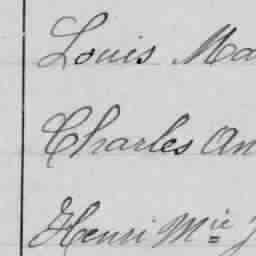 Louis Ma
Charles An
Henri Mie J